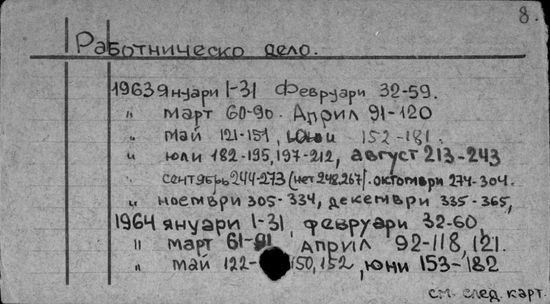 8.
Работническо дело.
1963 януари 1-31 Февруари 32-59.
" март 60-90. Април 91-120
" май 121-151, юни 152-181.
" юли 182-195, 197-212, август 213-243
" сентябрь 244-273 (нет 248,267). октомври 274-304.
" ноември 305-334, декември 335-365,
1964 януари 1-31, февруари 32-60,
" март 61-91 април 92-118, 121.
" май 122- 150, 152, юни 153-182
см. след. карт.